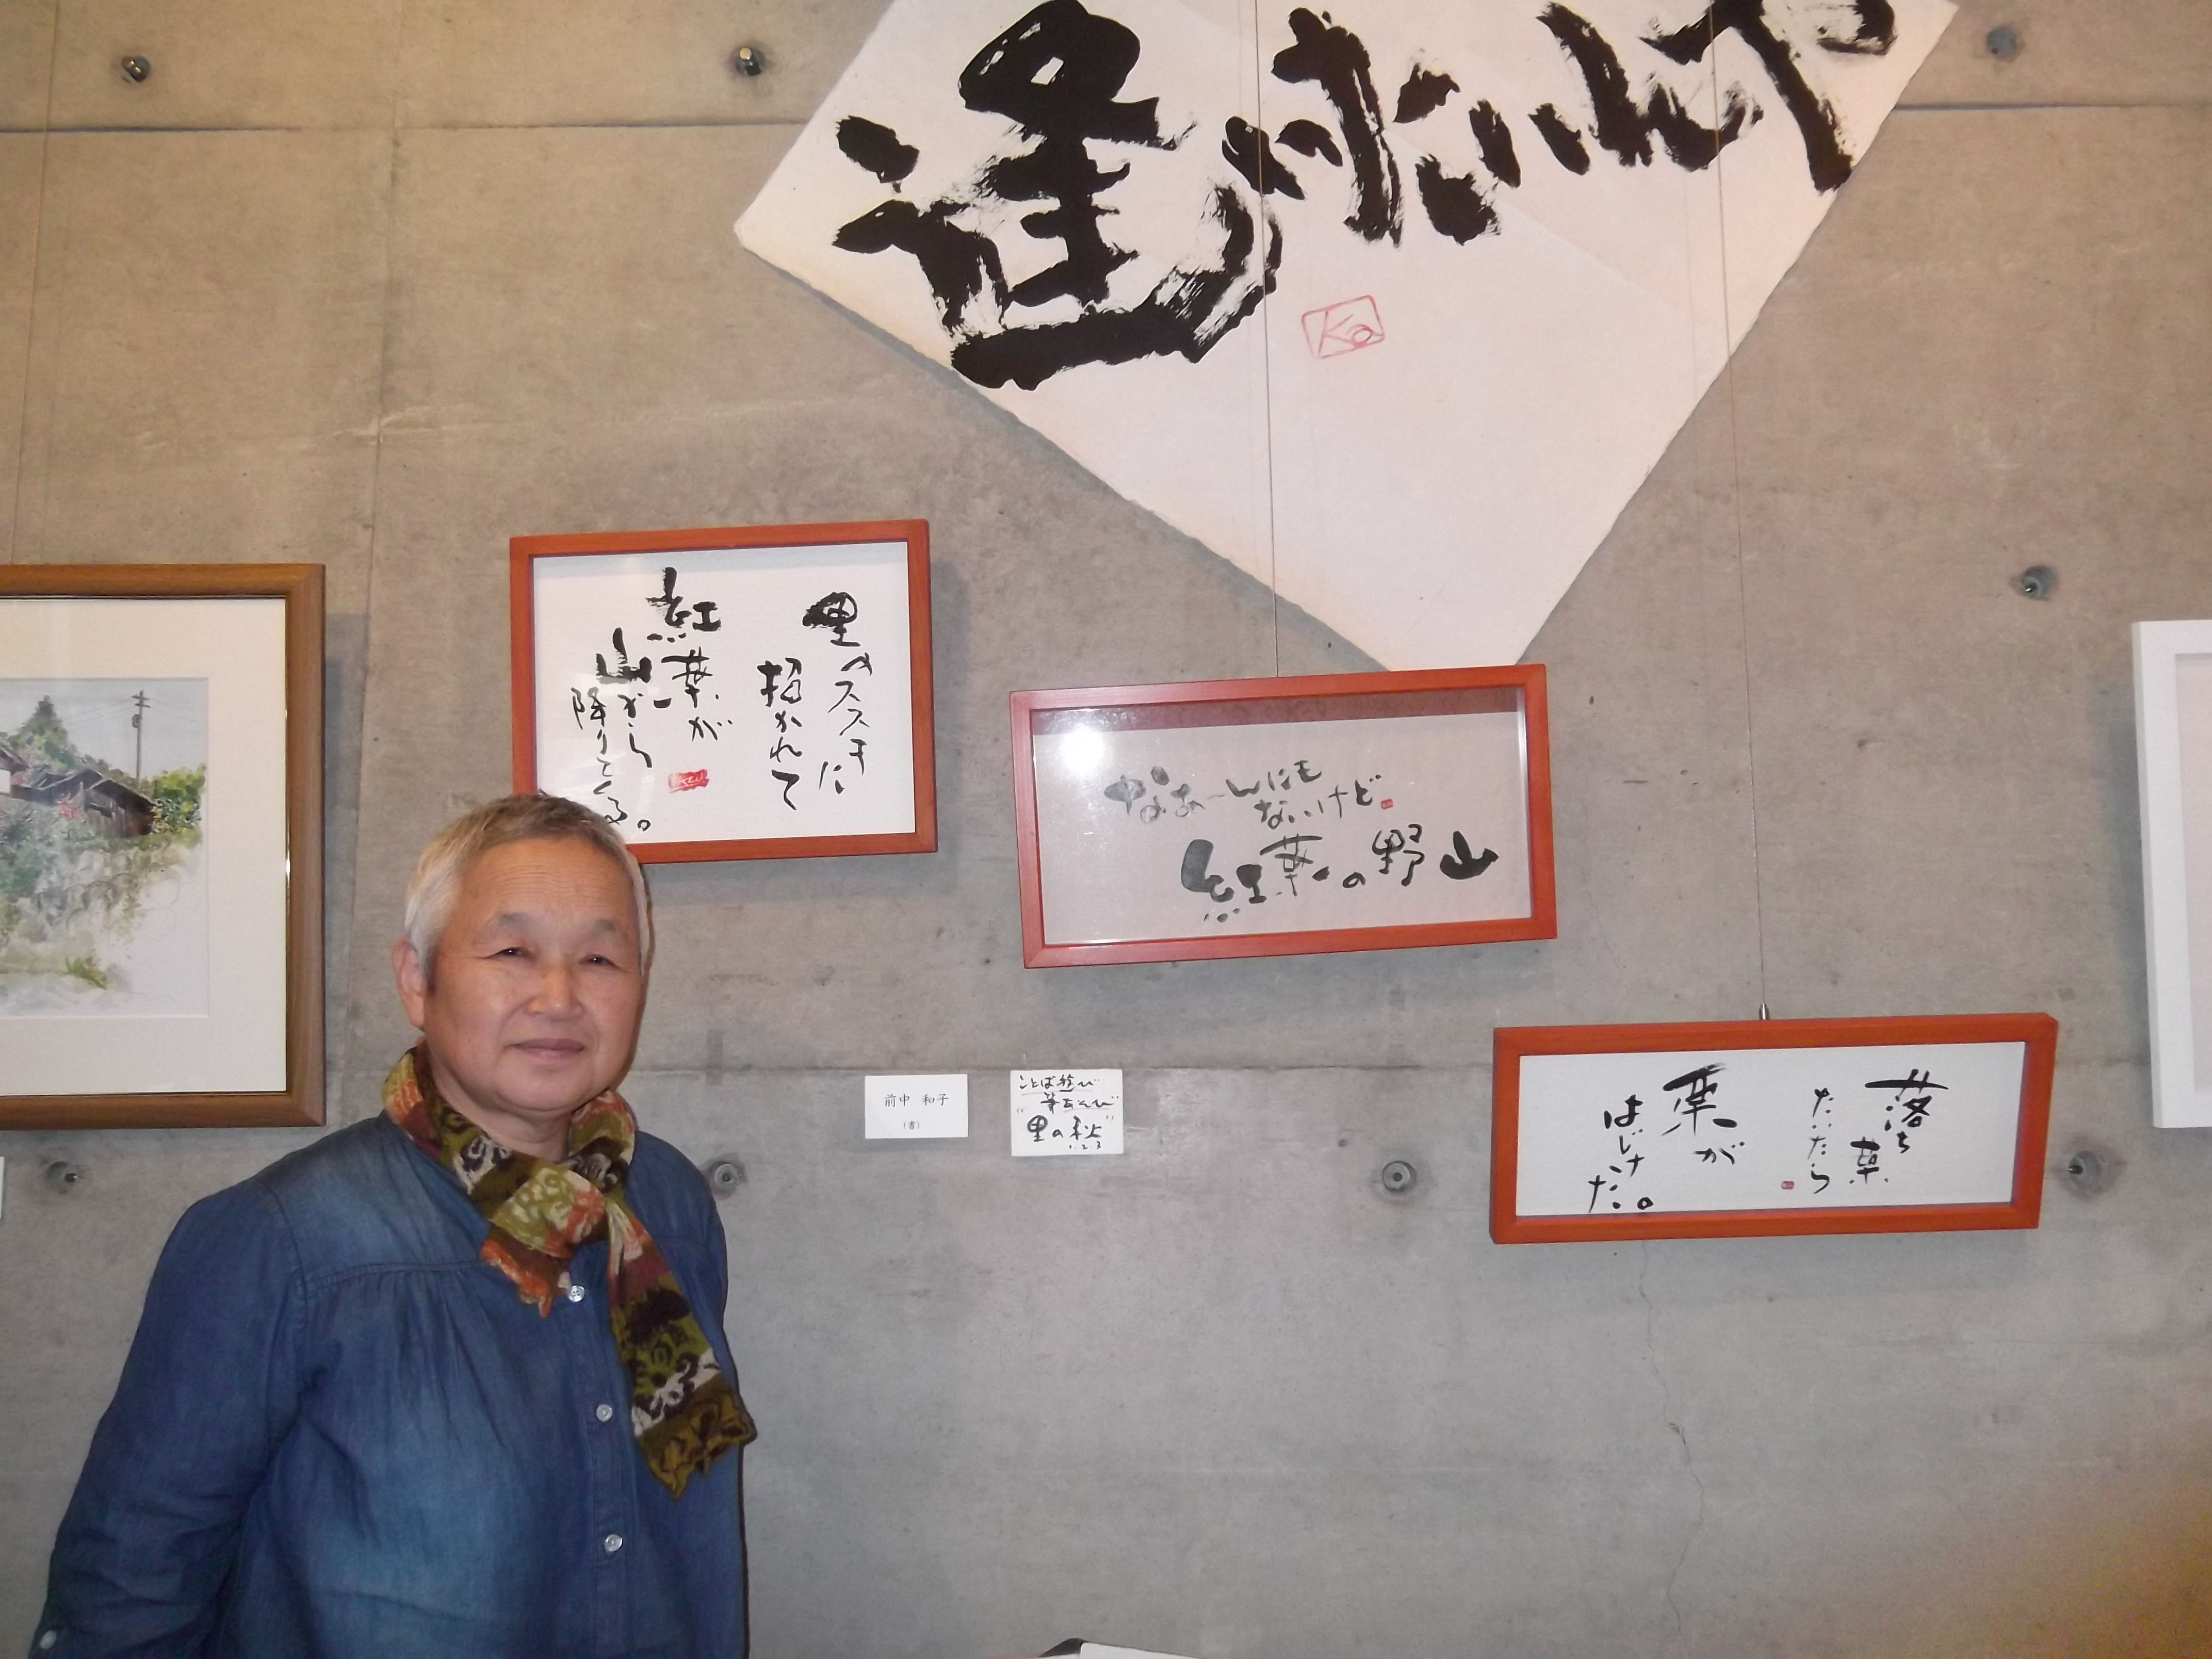 逢いたいんや
Ka
里のススキに
招かれて
紅葉が
山から
降りてくる。
なぁーんにも
ないけど
紅葉の野山
前中 和子
（書）
ことば遊び
筆あそび
"里の秋"
1.2.3
落ち葉
たいたら
栗が
はじけた。